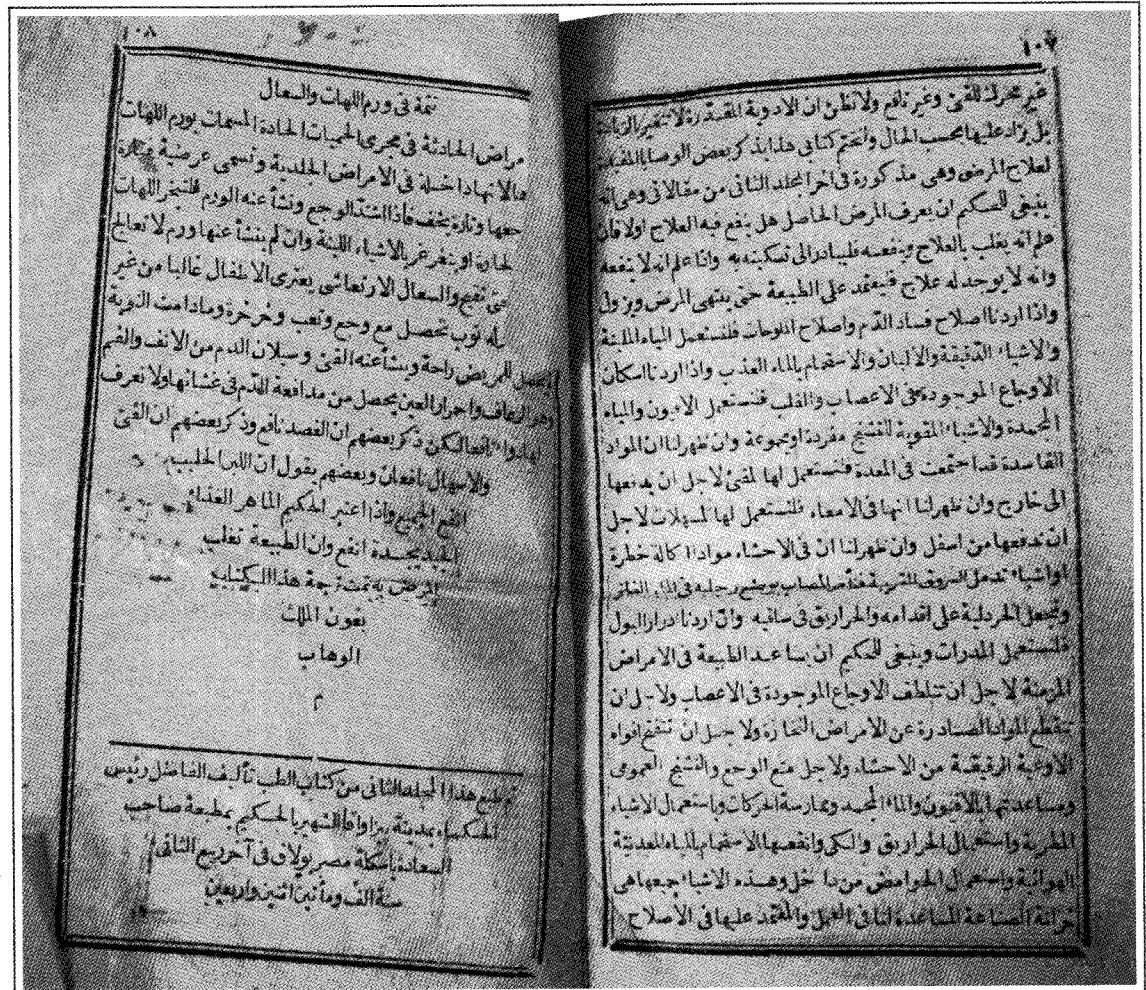 ١٠٧
غير محرك للقئ وغير نافع ولا تظن ان الادوية المقتدرة لا تتغير الزيادة
بل يزاد عليها بحسب الحال ولنختم كتابى هذا بذكر بعض الوصايا المفيدة
لعلاج المرضى وهى مذكورة فى اخر المجلد الثانى من مقالاتى وهى انه
ينبغى للحكيم ان يعرف المرض الحاصل هل ينفع فيه العلاج اولا فان
علم انه يغلب بالعلاج وينفعه فليبادر الى تسكينه به واذا علم انه لا ينفعه
وانه لا يوجد له علاج فليعتمد على الطبيعة حتى ينتهى المرض ويزول
واذا اردنا اصلاح فساد الدم واصلاح الملوحات فلنستعمل المياه الملينة
والاشياء الدقيقة والالبان والاستحمام بالماء العذب واذا اردنا اسكان
الاوجاع الموجودة فى الاعصاب والقلب فنستعمل الافيون والمياه
المجمدة والاشياء المقوية للتشنج مفردة او مجموعة وان ظهر لنا ان المواد
الفاسدة قد اجتمعت فى المعدة فلنستعمل لها المقئ لاجل ان يدفعها
الى خارج وان ظهر لنا انها فى الامعاء فلنستعمل لها المسهلات لاجل
ان تدفعها من اسفل وان ظهر لنا ان فى الاحشاء مواد اكالة خطرة
اواشياء تدخل العروق المصاب بوضع رجليه فى الماء الفاتر
وتجعل الخردلية على اقدامه والحراريق فى ساقيه وان اردنا ادرار البول
فلنستعمل المدرات وينبغى للحكيم ان يساعد الطبيعة فى الامراض
المزمنة لاجل ان تتلطف الاوجاع الموجودة فى الاعصاب ولاجل ان
تنقطع المواد الصادرة عن الامراض ولاجل ان تنفتح افواه
الاوعية الرقيقة من الاحشاء ولاجل منع الوجع والتشنج العمومى
ومساعدتها بالافيون والماء المجمد وبممارسة الحركات وباستعمال الاشياء
المطرية واستعمال الحراريق والكى وانفعها الاستحمام بالمياه المعدنية
الهوائية واستعمال الحوامض من داخل وهذه الاشياء جميعها هى
خزانة الصناعة المساعدة لنا فى العمل والمعتمد عليها فى الاصلاح
١٠٨
تتمة فى ورم اللهات والسعال
مراض الحادثة فى مجرى الحميات الحادة المسمات بورم اللهات
داخلة فى الامراض الجلدية وتسمى عرضية وتارة
وتارة يخف فاذا اشتد الوجع ونشأ عنه الورم اللهات
او يتغرغر بالاشياء اللينة وان لم ينشأ عنها ورم لا تعالج
والسعال الارتعاشى يعترى الاطفال غالبا من غير
له نوب تحصل مع وجع وتعب وخرخرة ومادامت النوبة
للمريض راحة وينشأ عنه القئ وسيلان الدم من الانف والفم
وهو الرعاف واحرار العين يحصل من مدافعة الدم فى غشائها ولا نعرف
لها دواء نافعا لكن ذكر بعضهم ان الفصد نافع وذكر بعضهم ان القئ
والاسهال نافعان وبعضهم يقول ان اللبن الحليب
انفع الجميع واذا اعتبر الحكيم الماهر الغذاء
الجيد يجده انفع وان الطبيعة تغلب
المرض به تمت ترجمة هذا الكتاب
بعون الملك
الوهاب
م
تم طبع هذا المجلد الثانى من كتاب الطب تأليف الفاضل رئيس
الحكماء بمدينة الشهير بالحكيم بمطبعة صاحب
السعادة باسكلة مصر بولاق فى آخر ربيع الثانى
سنة الف ومأتين اثنين واربعين